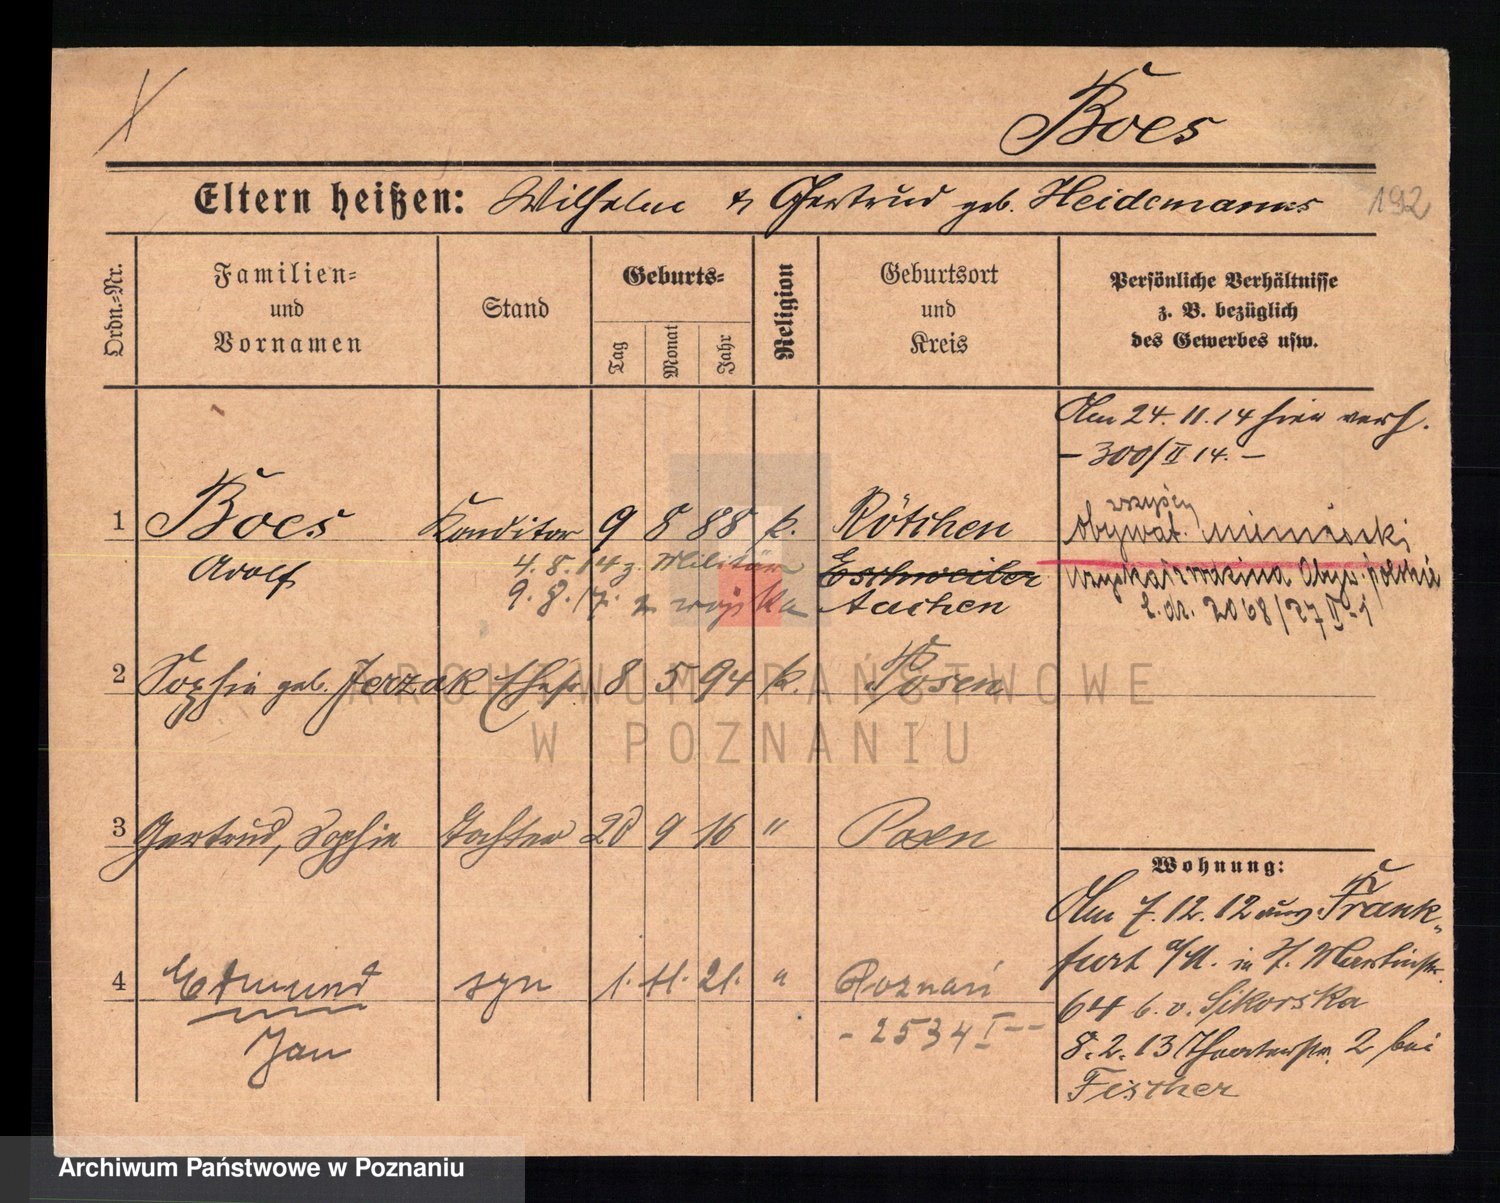 Boes
Eltern heißen: Wilhelm & Gertrud geb. Heidemanns
192
Ordn.=Nr.
Familien=
und
Vornamen
Stand
Geburts=
Tag
Monat
Jahr
Religion
Geburtsort
und
Kreis
Persönliche Verhältnisse
z. B. bezüglich
des Gewerbes usw.
Am 24. 11. 14 hier verh.
– 300/II 14. –
1 Boes Konditor 9 8 88 k. Röthen
Adolf
4. 8. 14 z. Militär
9. 8. 17. z wojska
Eschweiler
Aachen
wszyscy
obywat. niemiecki
Obyw. polskie
l. dz. 2068/27
2 Sophie geb. Jerzak Ehefr. 8 5 94 k. Posen
3 Gertrud, Sophie Tochter 20 9 16 " Posen
4 Edmund syn 1. 11. 21. " Poznań
Jan
- 2534 I --
Wohnung:
Am 7. 12. 12 aus Frank-
furt a/M. in Martinstr.
64 b. v. Sikorska
8. 2. 13 Theaterstr. 2 bei
Fischer
ARCHIWUM PAŃSTWOWE
W POZNANIU
Archiwum Państwowe w Poznaniu